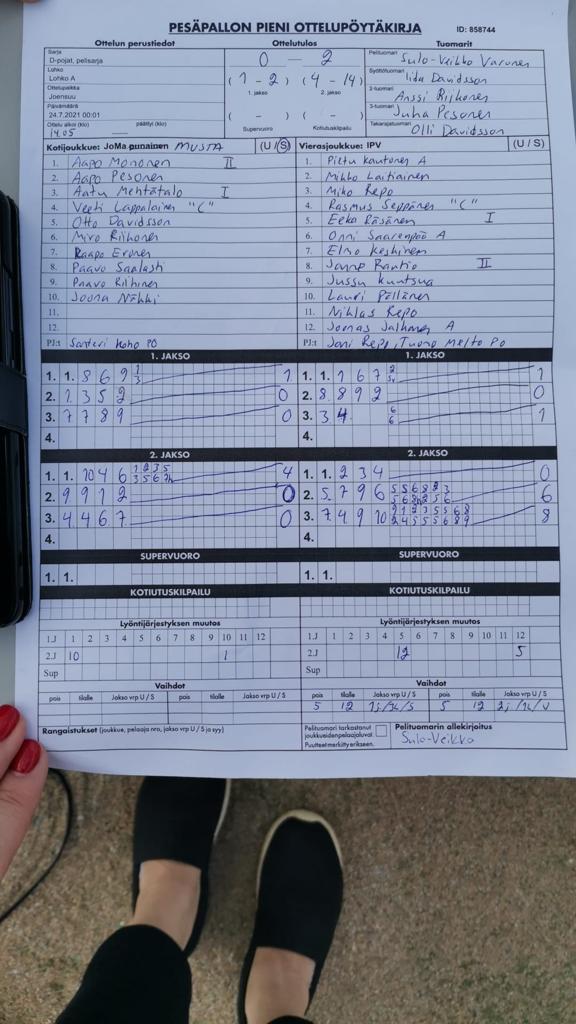 PESÄPALLON PIENI OTTELUPÖYTÄKIRJA ID: 858744
Ottelun perustiedot Ottelutulos Tuomarit
Sarja
D-pojat, pelisarja
Lohko
Lohko A
Ottelupaikka
Joensuu
Päivämäärä
24.7.2021 00:01
Ottelu alkoi (klo) päättyi (klo)
14.05
0 - 2
(1 - 2) (4 - 14)
1. jakso 2. jakso
( - ) ( - )
Supervuoro Kotiutuskilpailu
Pelituomari Sulo-Veikko Varonen
Syöttötuomari Iida Davidsson
2-tuomari Anssi Riikonen
3-tuomari Juha Pesonen
Takarajatuomari Olli Davidsson
Kotijoukkue: JoMa punainen MUSTA (U / S)
1. Aapo Mononen II
2. Aapo Pesonen
3. Aatu Mehtätalo I
4. Veeti Lappalainen "C"
5. Otto Davidsson
6. Miro Riikonen
7. Kaapo Eronen
8. Paavo Saalasti
9. Paavo Riihinen
10. Joona Nähki
11.
12.
PJ:t Santeri Koho PO
Vierasjoukkue: IPV (U / S)
1. Pietu Kautonen A
2. Mikko Laitiainen
3. Miko Repo
4. Rasmus Seppänen "C"
5. Eeka Räsänen I
6. Onni Saarenpää A
7. Elmo Keskinen
8. Janne Rautio II
9. Jussu Kuntsua
10. Lauri Pöllänen
11. Niklas Repo
12. Joonas Jalkanen A
PJ:t Joni Repo, Tuomo Melto PO
1. JAKSO 1. JAKSO
1. 1. 8 6 9 1 3 1
2. 1 3 5 2 0
3. 7 7 8 9 0
4.
1. 1. 1 6 7 1
2. 8 8 9 2 0
3. 3 4 6 6 1
4.
2. JAKSO 2. JAKSO
1. 1. 10 4 6 1 2 3 5 4
2. 9 9 1 2 0
3. 4 4 6 7 0
4.
1. 1. 2 3 4 0
2. 5 7 9 6 6
3. 7 4 9 10 8
4.
SUPERVUORO SUPERVUORO
1. 1. 1. 1.
KOTIUTUSKILPAILU KOTIUTUSKILPAILU
Lyöntijärjestyksen muutos Lyöntijärjestyksen muutos
1.J 1 2 3 4 5 6 7 8 9 10 11 12
2.J 10 1
Sup
1.J 1 2 3 4 5 6 7 8 9 10 11 12
2.J 12 5
Sup
Vaihdot Vaihdot
pois tilalle Jakso vrp U / S pois tilalle Jakso vrp U / S
pois tilalle Jakso vrp U / S pois tilalle Jakso vrp U / S
5 12 5 12
Rangaistukset (joukkue, pelaaja nro, jakso vrp U / S ja syy)
Pelituomari tarkastanut
joukkueiden pelaajaluvat
Puutteet merkitty erikseen.
Pelituomarin allekirjoitus
Sulo-Veikko